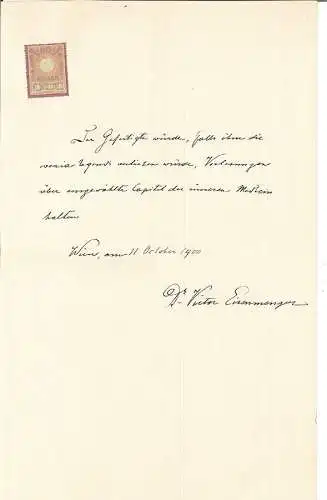 Der Gefertigte würde, falls ihm die
venia legendi verliehen würde, Vorlesungen
über ausgewählte Capitel der inneren Medicin
halten.
Wien, am 11 October 1900
Dr. Victor Eisenmenger